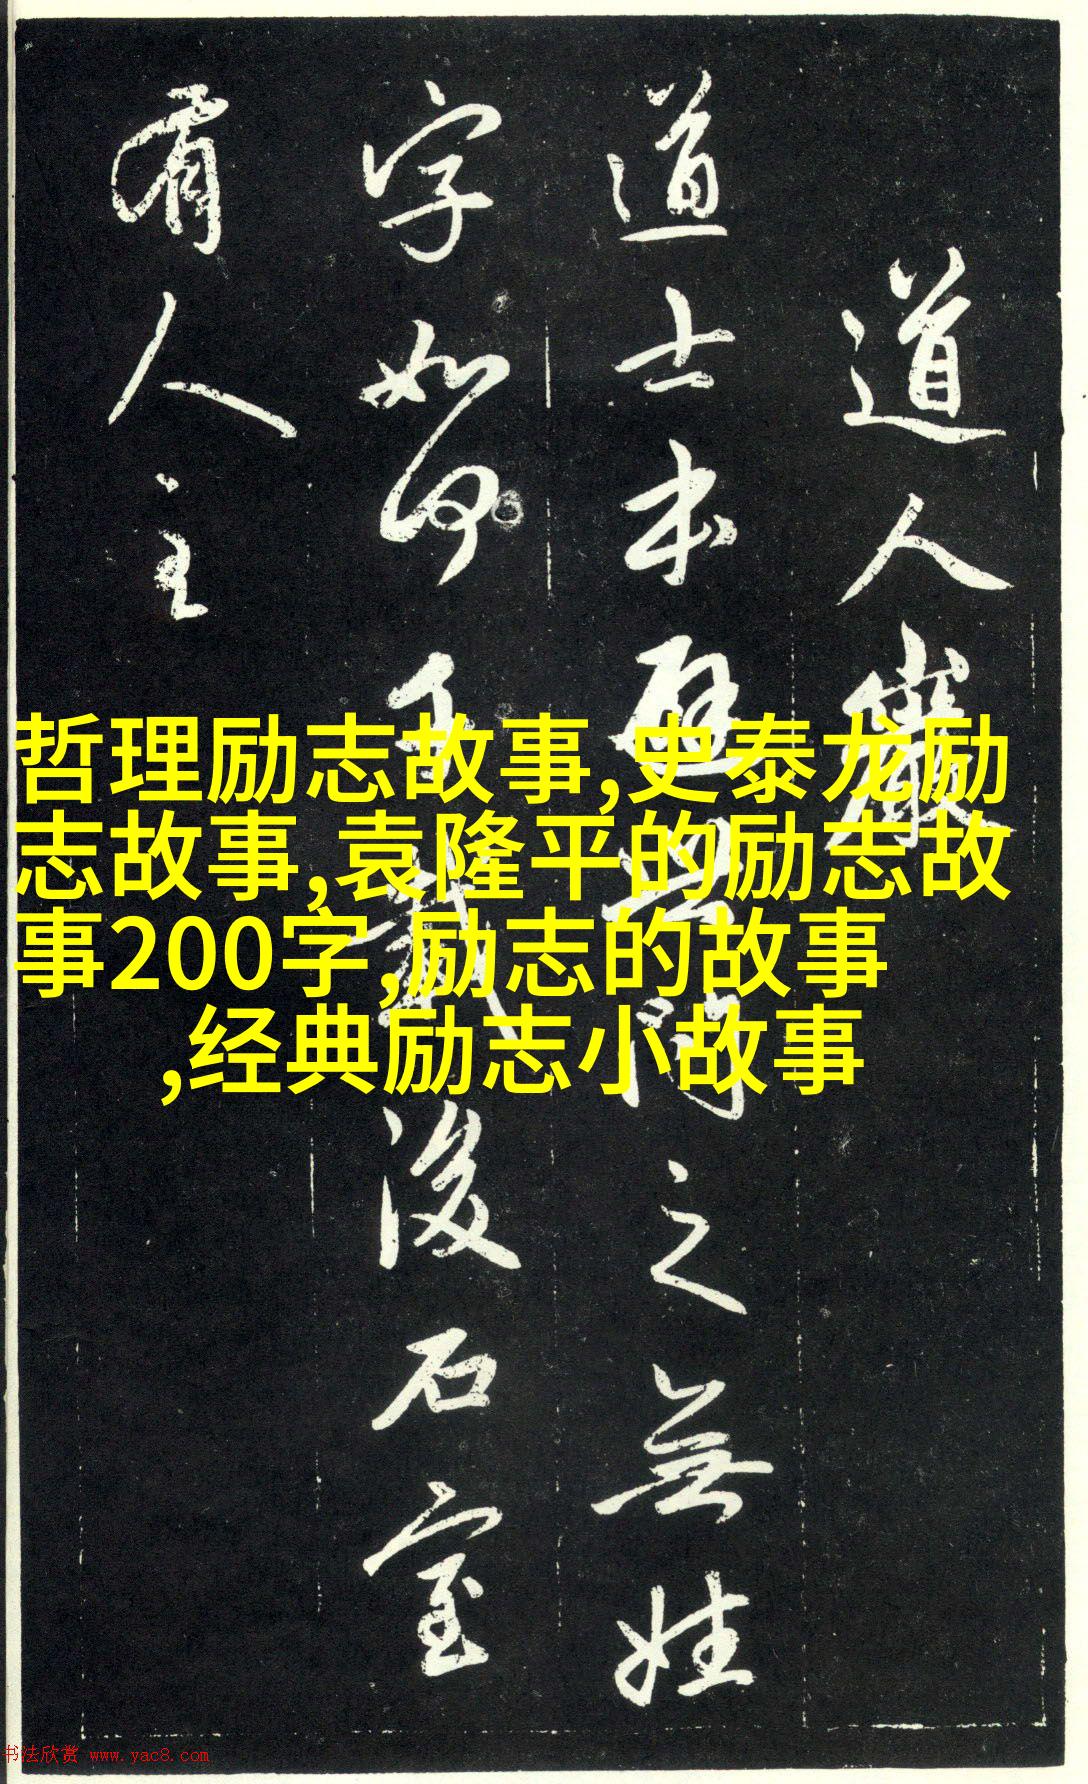 道人巖
道士本無學問之無姓
字如何千載後石室
有人主
哲理励志故事,史泰龙励
志故事,袁隆平的励志故
事200字,励志的故事
,经典励志小故事
书法欣赏 www.yac8.com